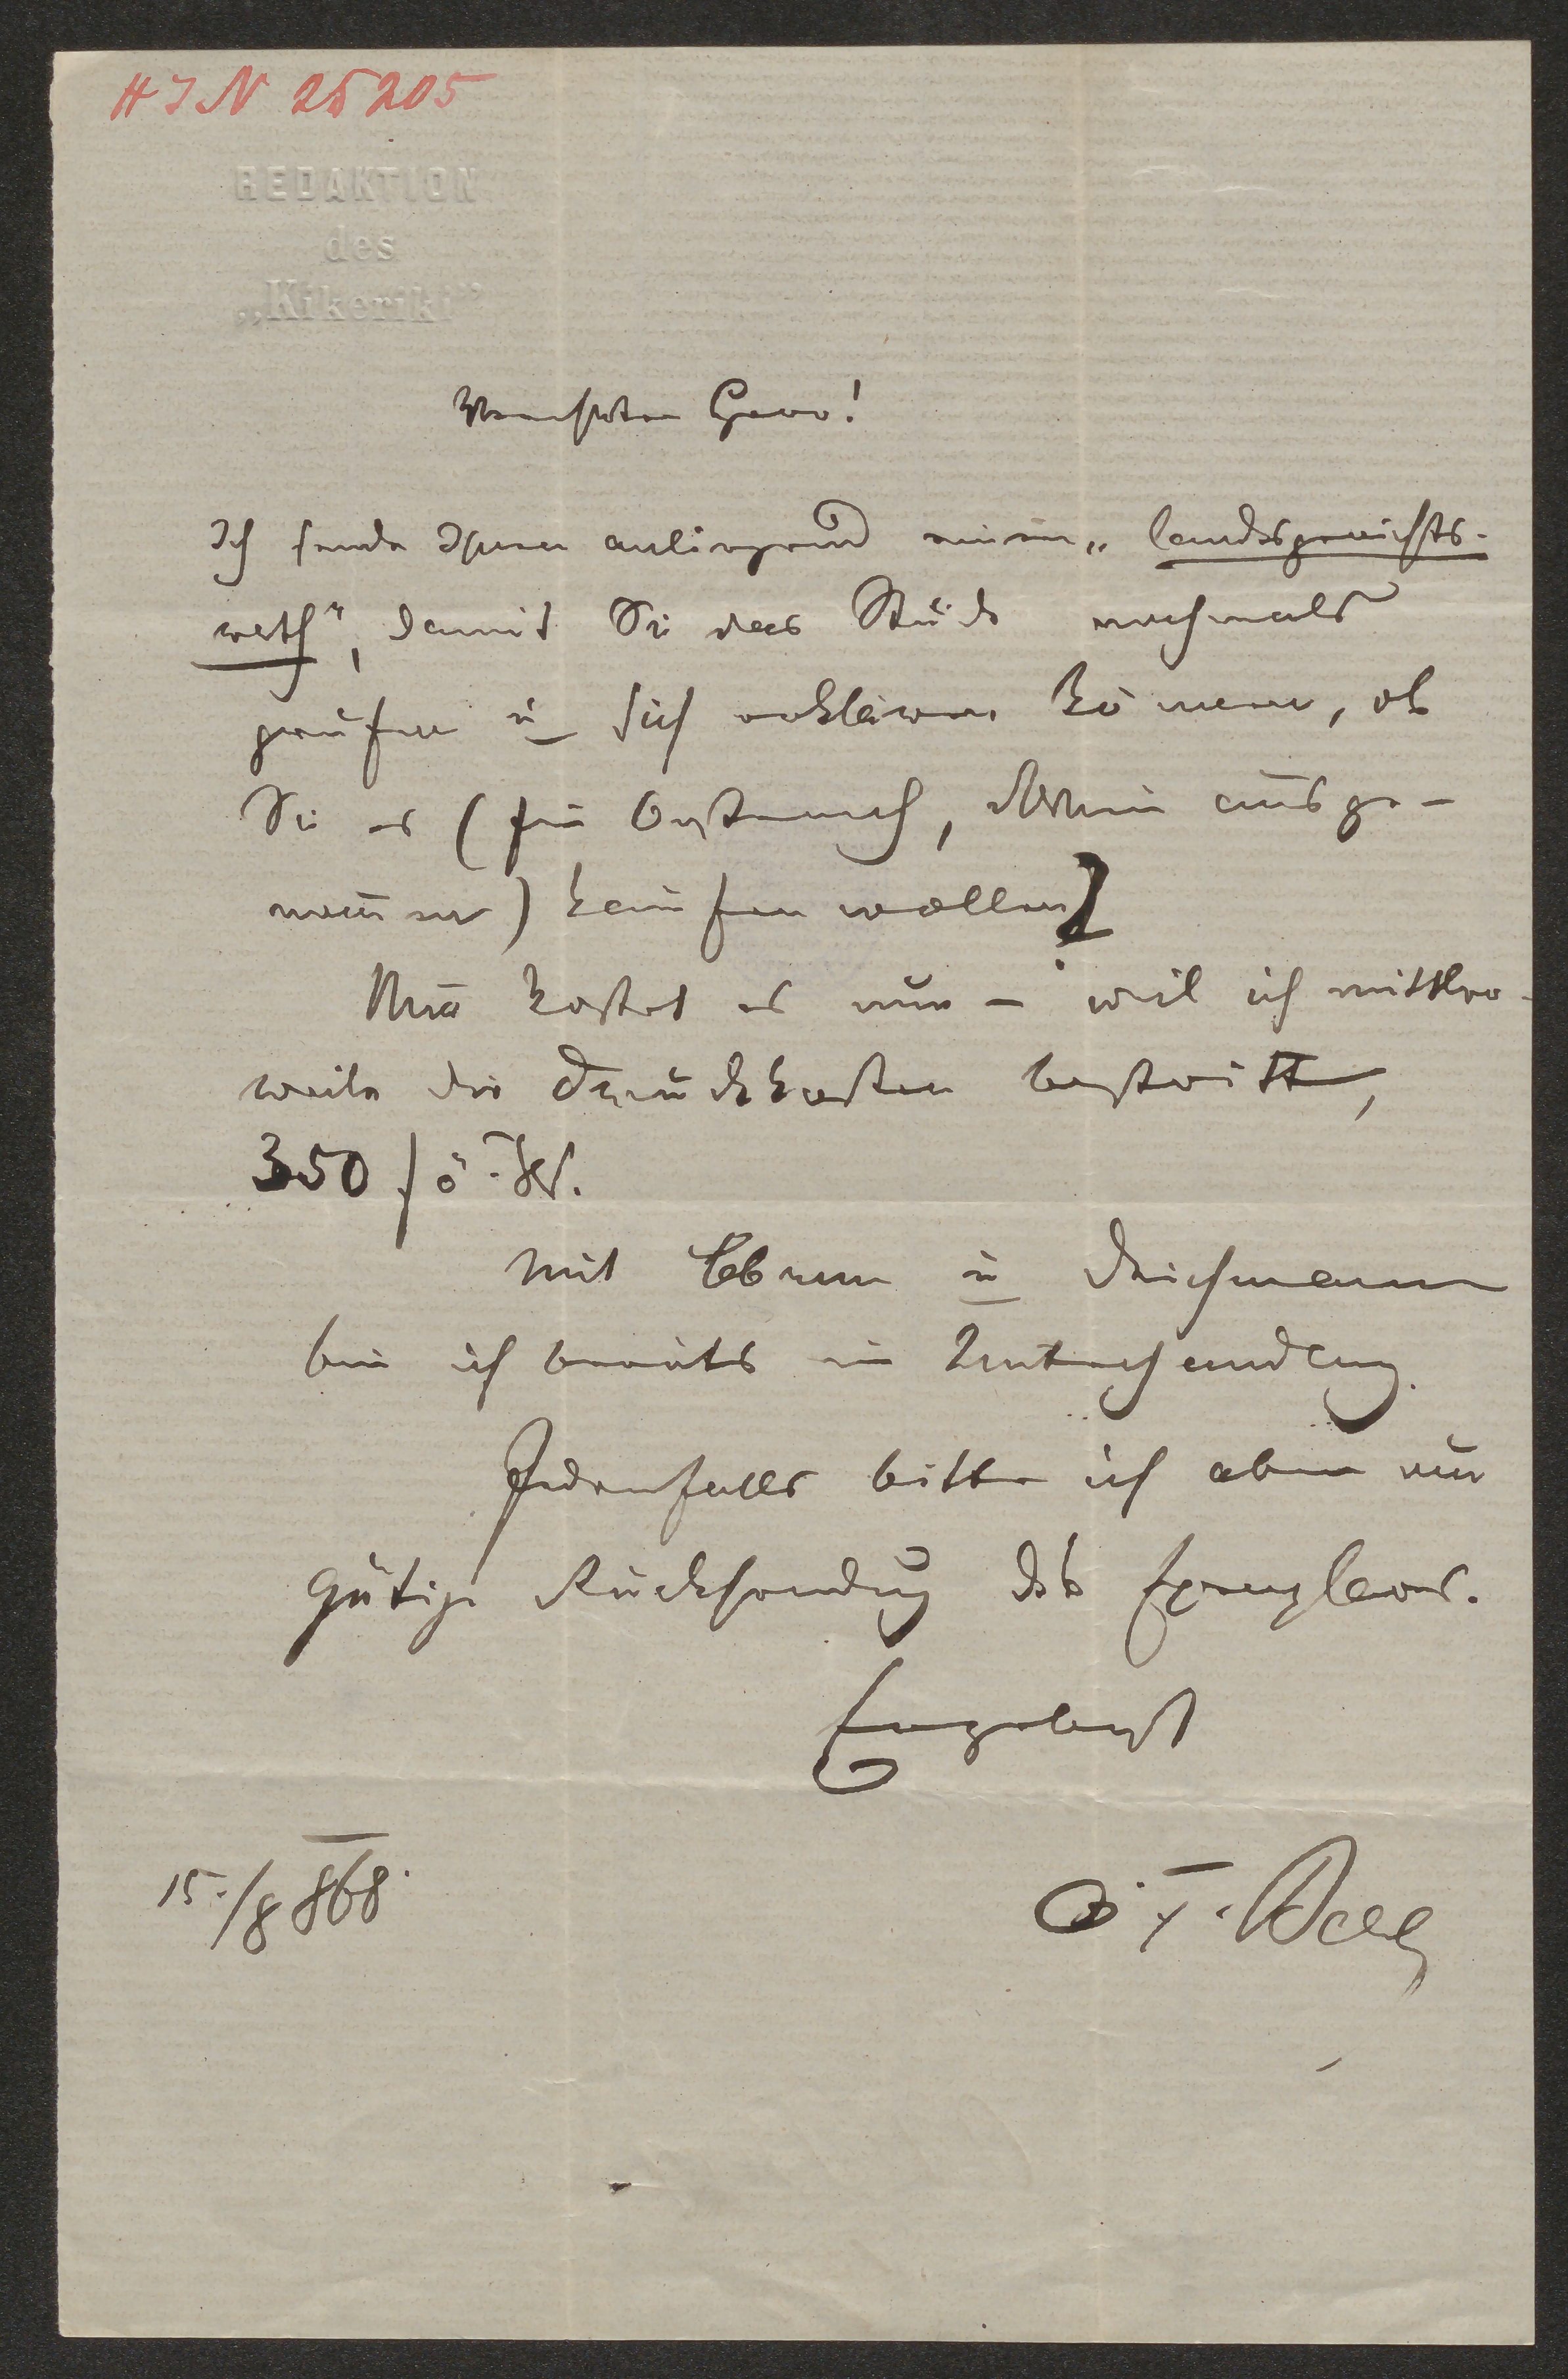 H I N 25205
REDAKTION
des
„Kikeriki"
Verehrter Herr!
Ich sende Ihnen anliegend meinen „Landesgerichts-
rath", damit Sie das Stück nochmals
prüfen u sich erklären können, ob
Sie es (für Österreich, Wien ausge-
nommen) kaufen wollen?
Nun kostet es nur – weil ich mittler-
weile die Druckkosten bestritt,
350 f ö. W.
Mit u Deichmann
bin ich bereits in Unterhandlung.
Jedenfalls bitte ich aber um
gütige Rücksendung des Exemplares.
Ergebenst
15./8 868.
O. F. Berg